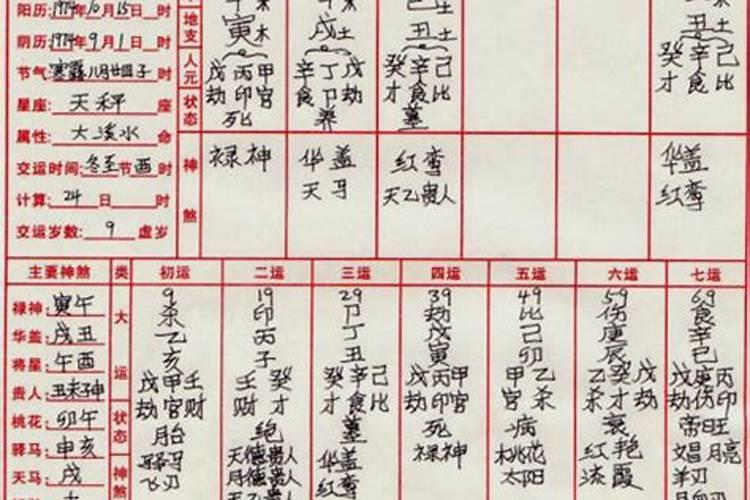 阳历:1974年10月15日 时
阴历:1974年9月1日 时
节气:寒露八月廿四子时
星座: 天秤 座
属性: 大溪水 命
交运时间:冬至节酉时
计算: 24 日 时
交运岁数: 9 虚岁
地支
人元
状态
神煞
寅木
戊丙甲
劫印官
死
禄神
戌土
辛丁戊
食卩劫
养
华盖
天马
丑土
癸辛己
才食比
墓
红鸾
天乙贵人
丑土
癸辛己
才食比
华盖
红鸾
主要神煞 类 初运 二运 三运 四运 五运 六运 七运
禄神:寅午
华盖:戌丑
将星:午酉
贵人:丑未子申
桃花:卯午
驿马:申亥
天马:戌
大运
状态
神煞
9
杀
乙
亥
戊甲壬
劫官财
胎
驿马
飞刃
19
印
丙
子
壬癸
财才
绝
天德贵人
月德贵人
天乙贵人
29
卩
丁
丑
癸辛己
才食比
墓
华盖
红鸾
39
劫
戊
寅
戊丙甲
劫印官
死
禄神
49
比
己
卯
甲乙
官杀
病
桃花
太阳
59
伤
庚
辰
乙癸戊
杀才劫
衰
红艳
流霞
69
食
辛
巳
戊庚丙
劫伤印
帝旺
文昌 月亮
羊刃